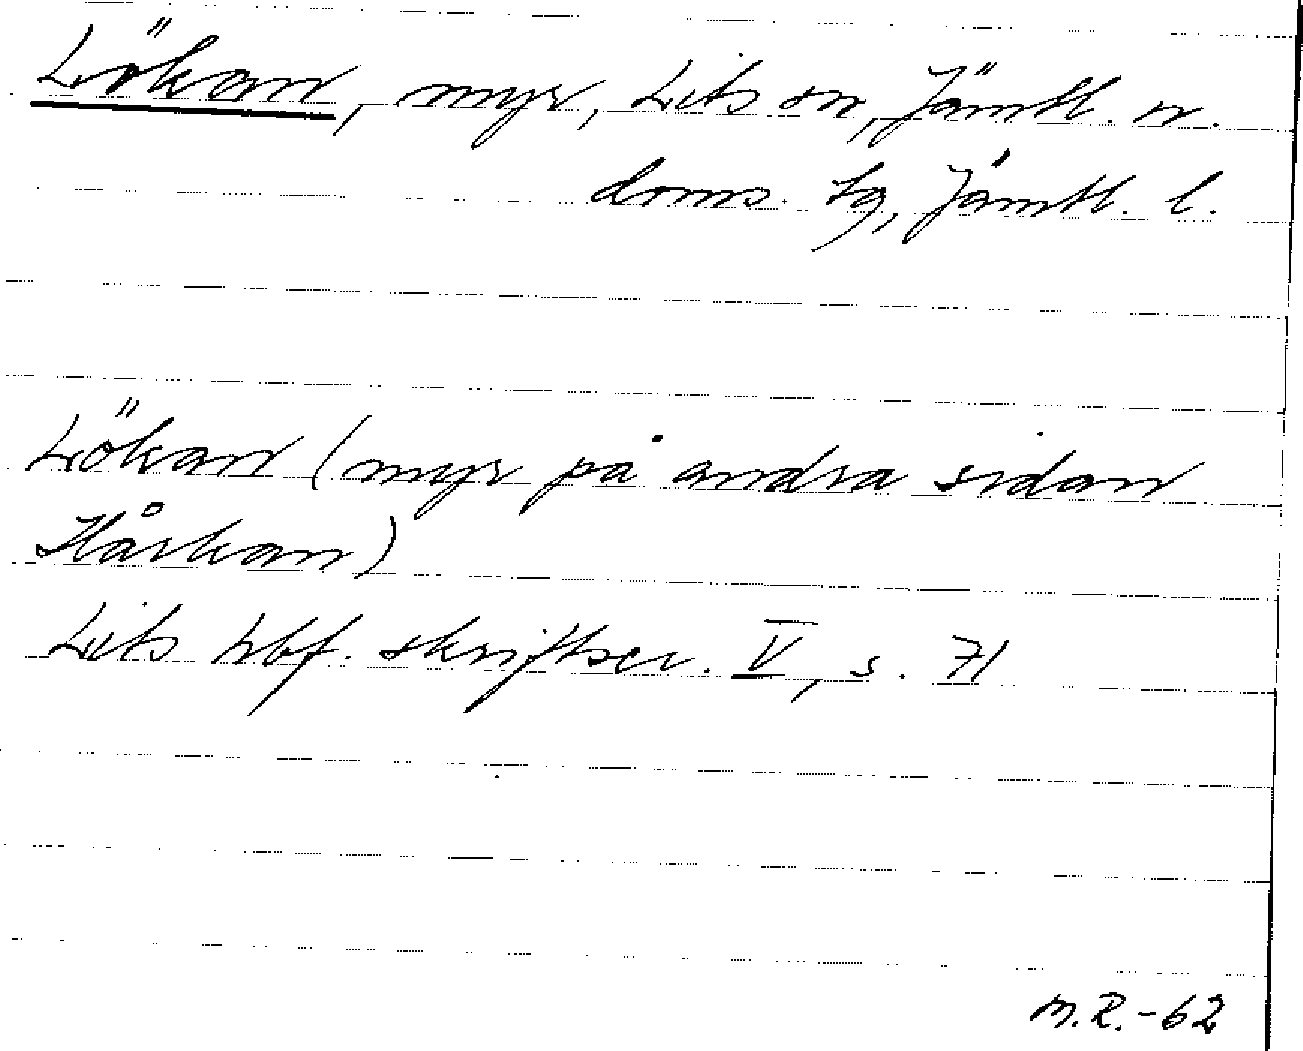 Lökan, myr, Lits sn, Jämtl. n.
doms. tg, Jämtl. l.
Lökan (myr på andra sidan
Hårkan)
Lits hbf. skriftser. V, s. 71
M.R.-62